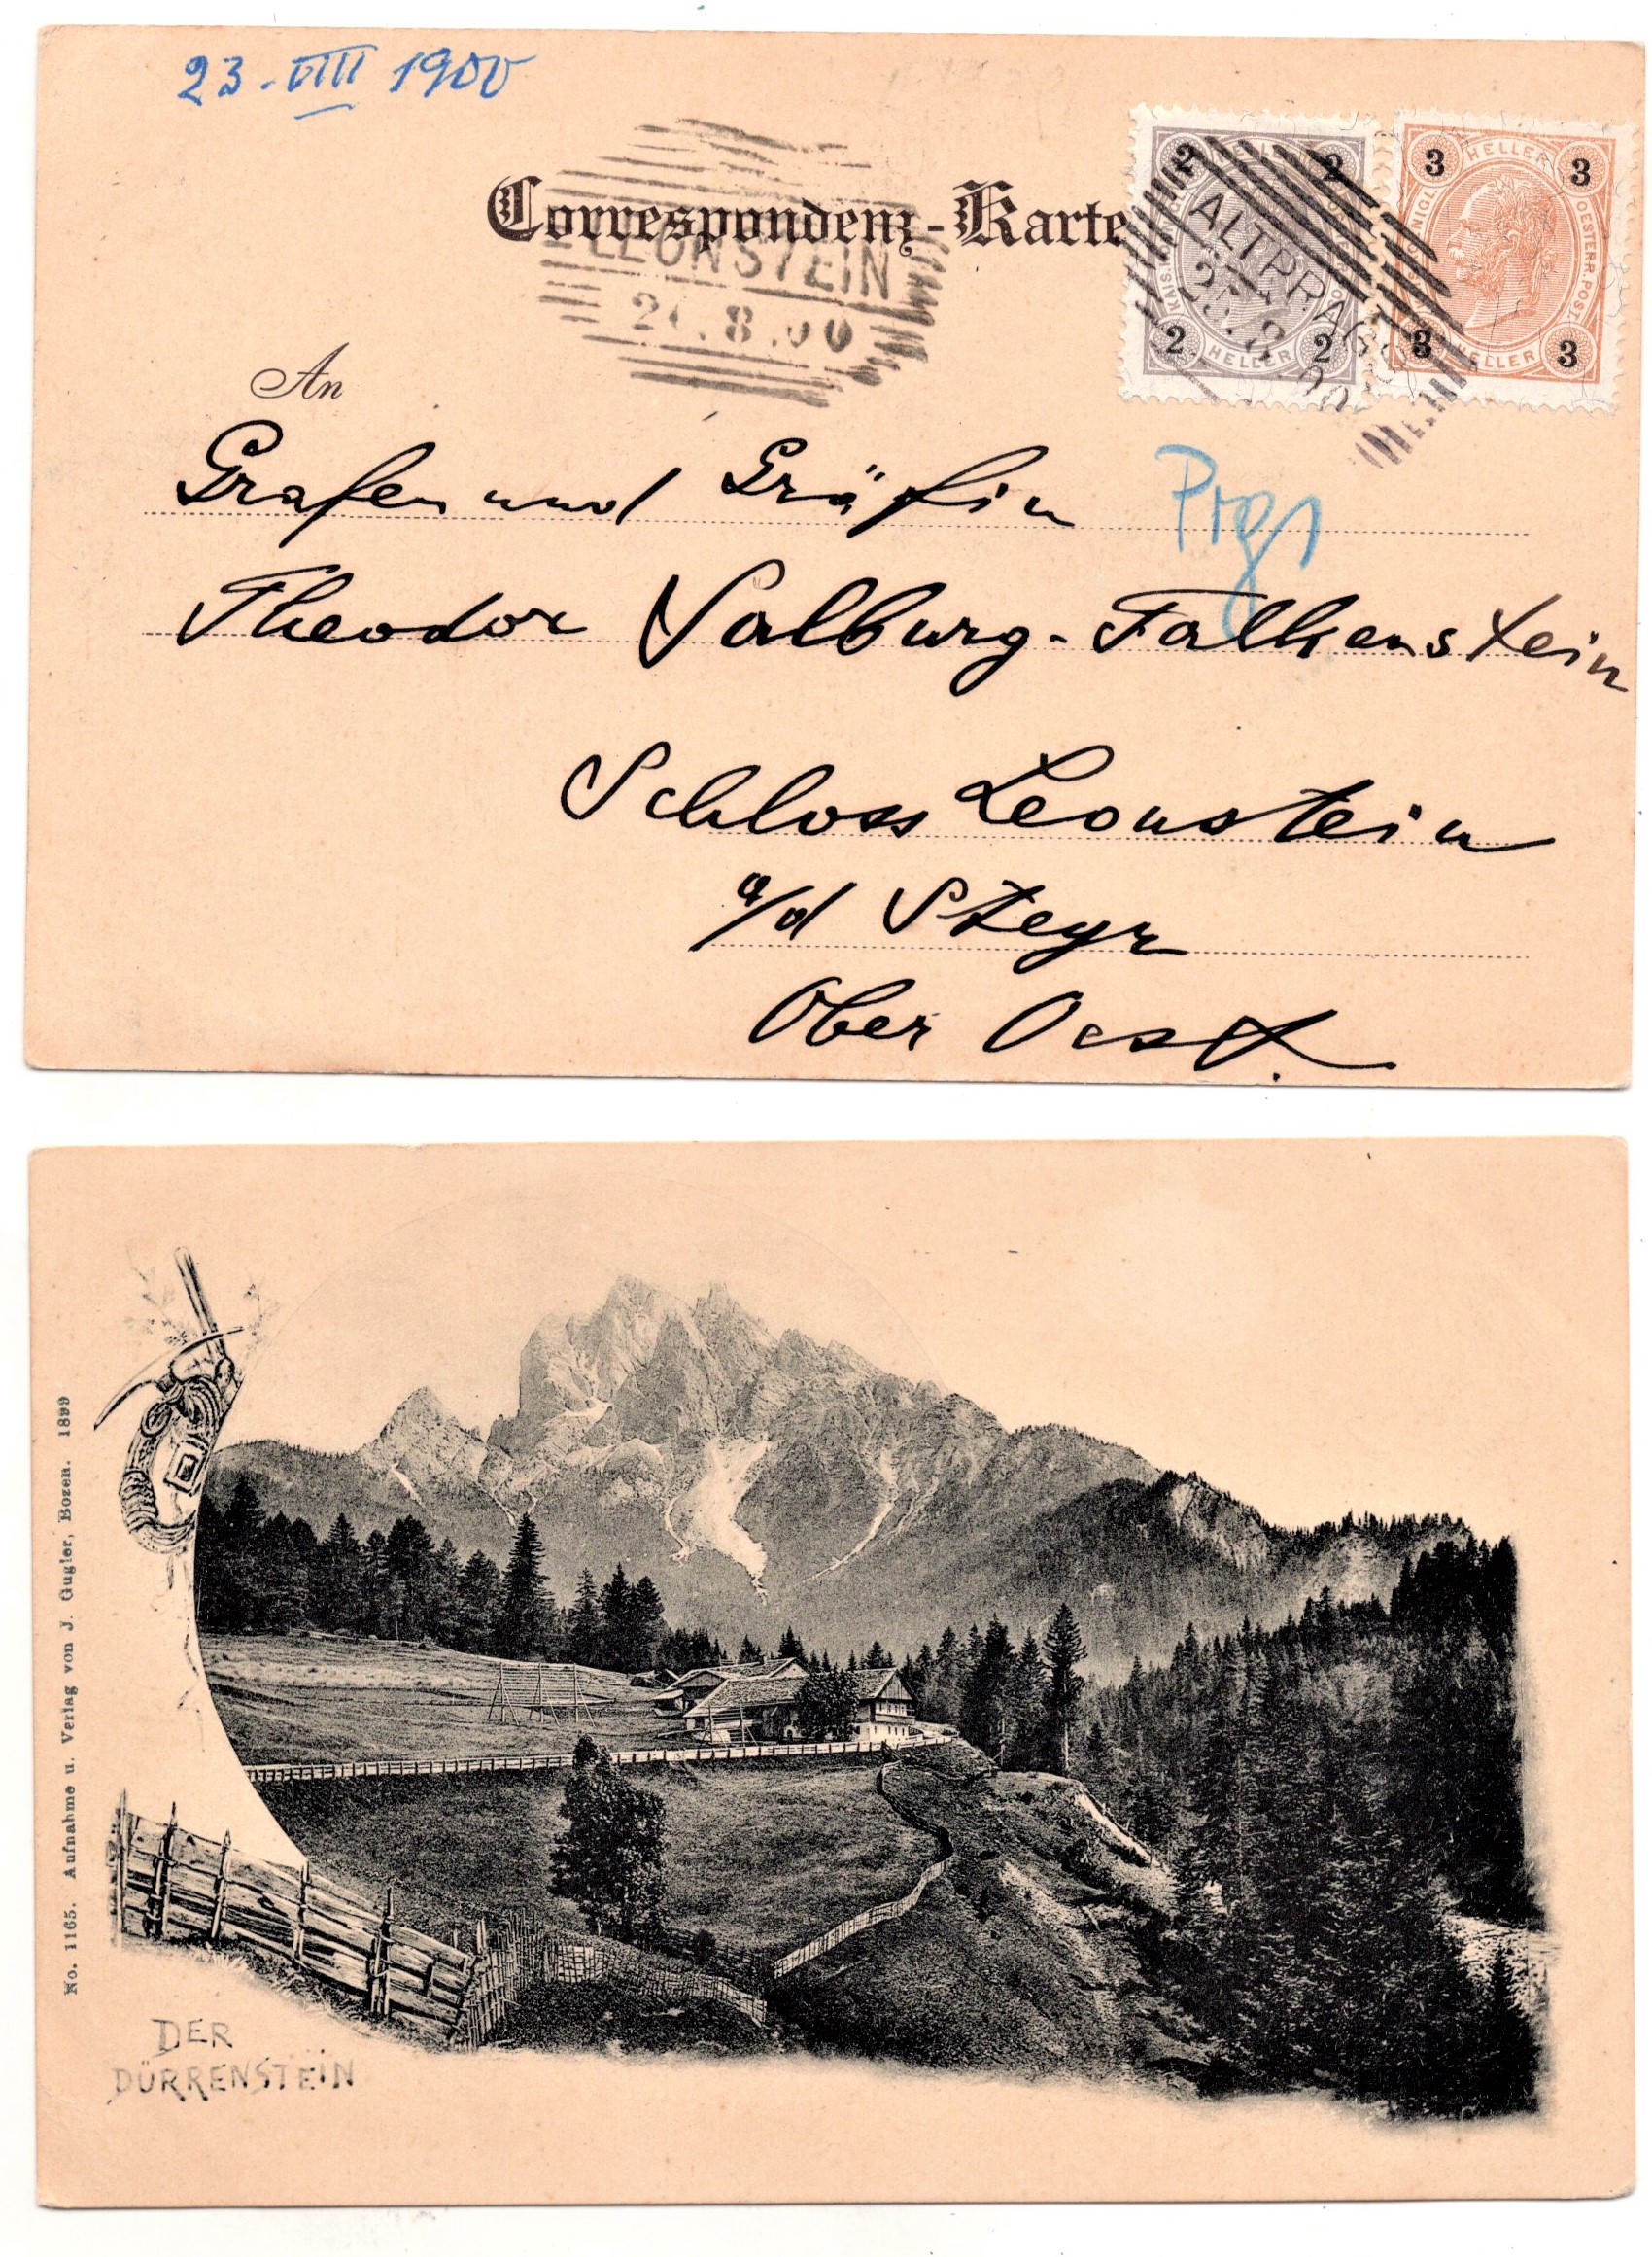 23. VIII 1900
Correspondenz-Karte
LEONSTEIN
.8.00
2 2 2 2
HELLER
ALTPRAGS
3 HELLER 3
OESTERR. POST.
3 HELLER 3
An
Grafen und Gräfin
Prgs
Theodor Salburg-Falkenstein
Schloss Leonstein
a/d Steyr
Ober Oest.
No. 1165. Aufnahme u. Verlag von J. Gugler, Bozen. 1899
DER
DÜRRENSTEIN